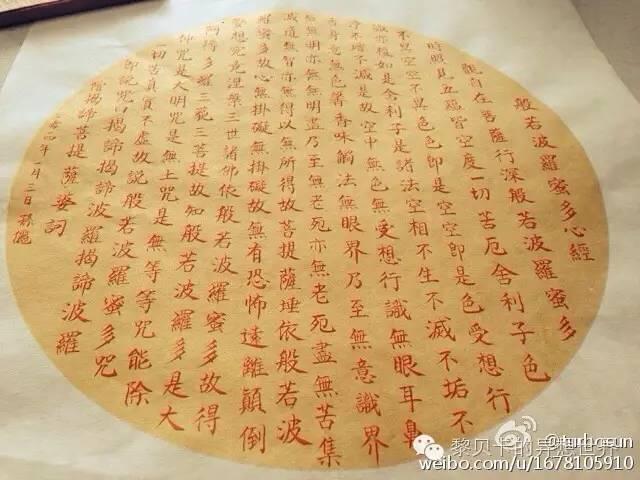 般若波羅蜜多心經
觀自在菩薩行深般若波羅蜜多
時照見五蘊皆空度一切苦厄舍利子色
不異空空不異色色即是空空即是色受想行
識亦復如是舍利子是諸法空相不生不滅不垢不
淨不增不減是故空中無色無受想行識無眼耳鼻
舌身意無色聲香味觸法無眼界乃至無意識界
無無明亦無無明盡乃至無老死亦無老死盡無苦集
滅道無智亦無得以無所得故菩提薩埵依般若波
羅蜜多故心無掛礙無掛礙故無有恐怖遠離顛倒
夢想究竟涅槃三世諸佛依般若波羅蜜多故得
阿耨多羅三藐三菩提故知般若波羅蜜多是大
神咒是大明咒是無上咒是無等等咒能除
一切苦真實不虛故說般若波羅蜜多咒
即說咒曰揭諦揭諦波羅揭諦波羅
僧揭諦菩提薩婆訶
四年一月二日 孫儷
@turbosun
黎贝卡的异想世界
weibo.com/u/1678105910